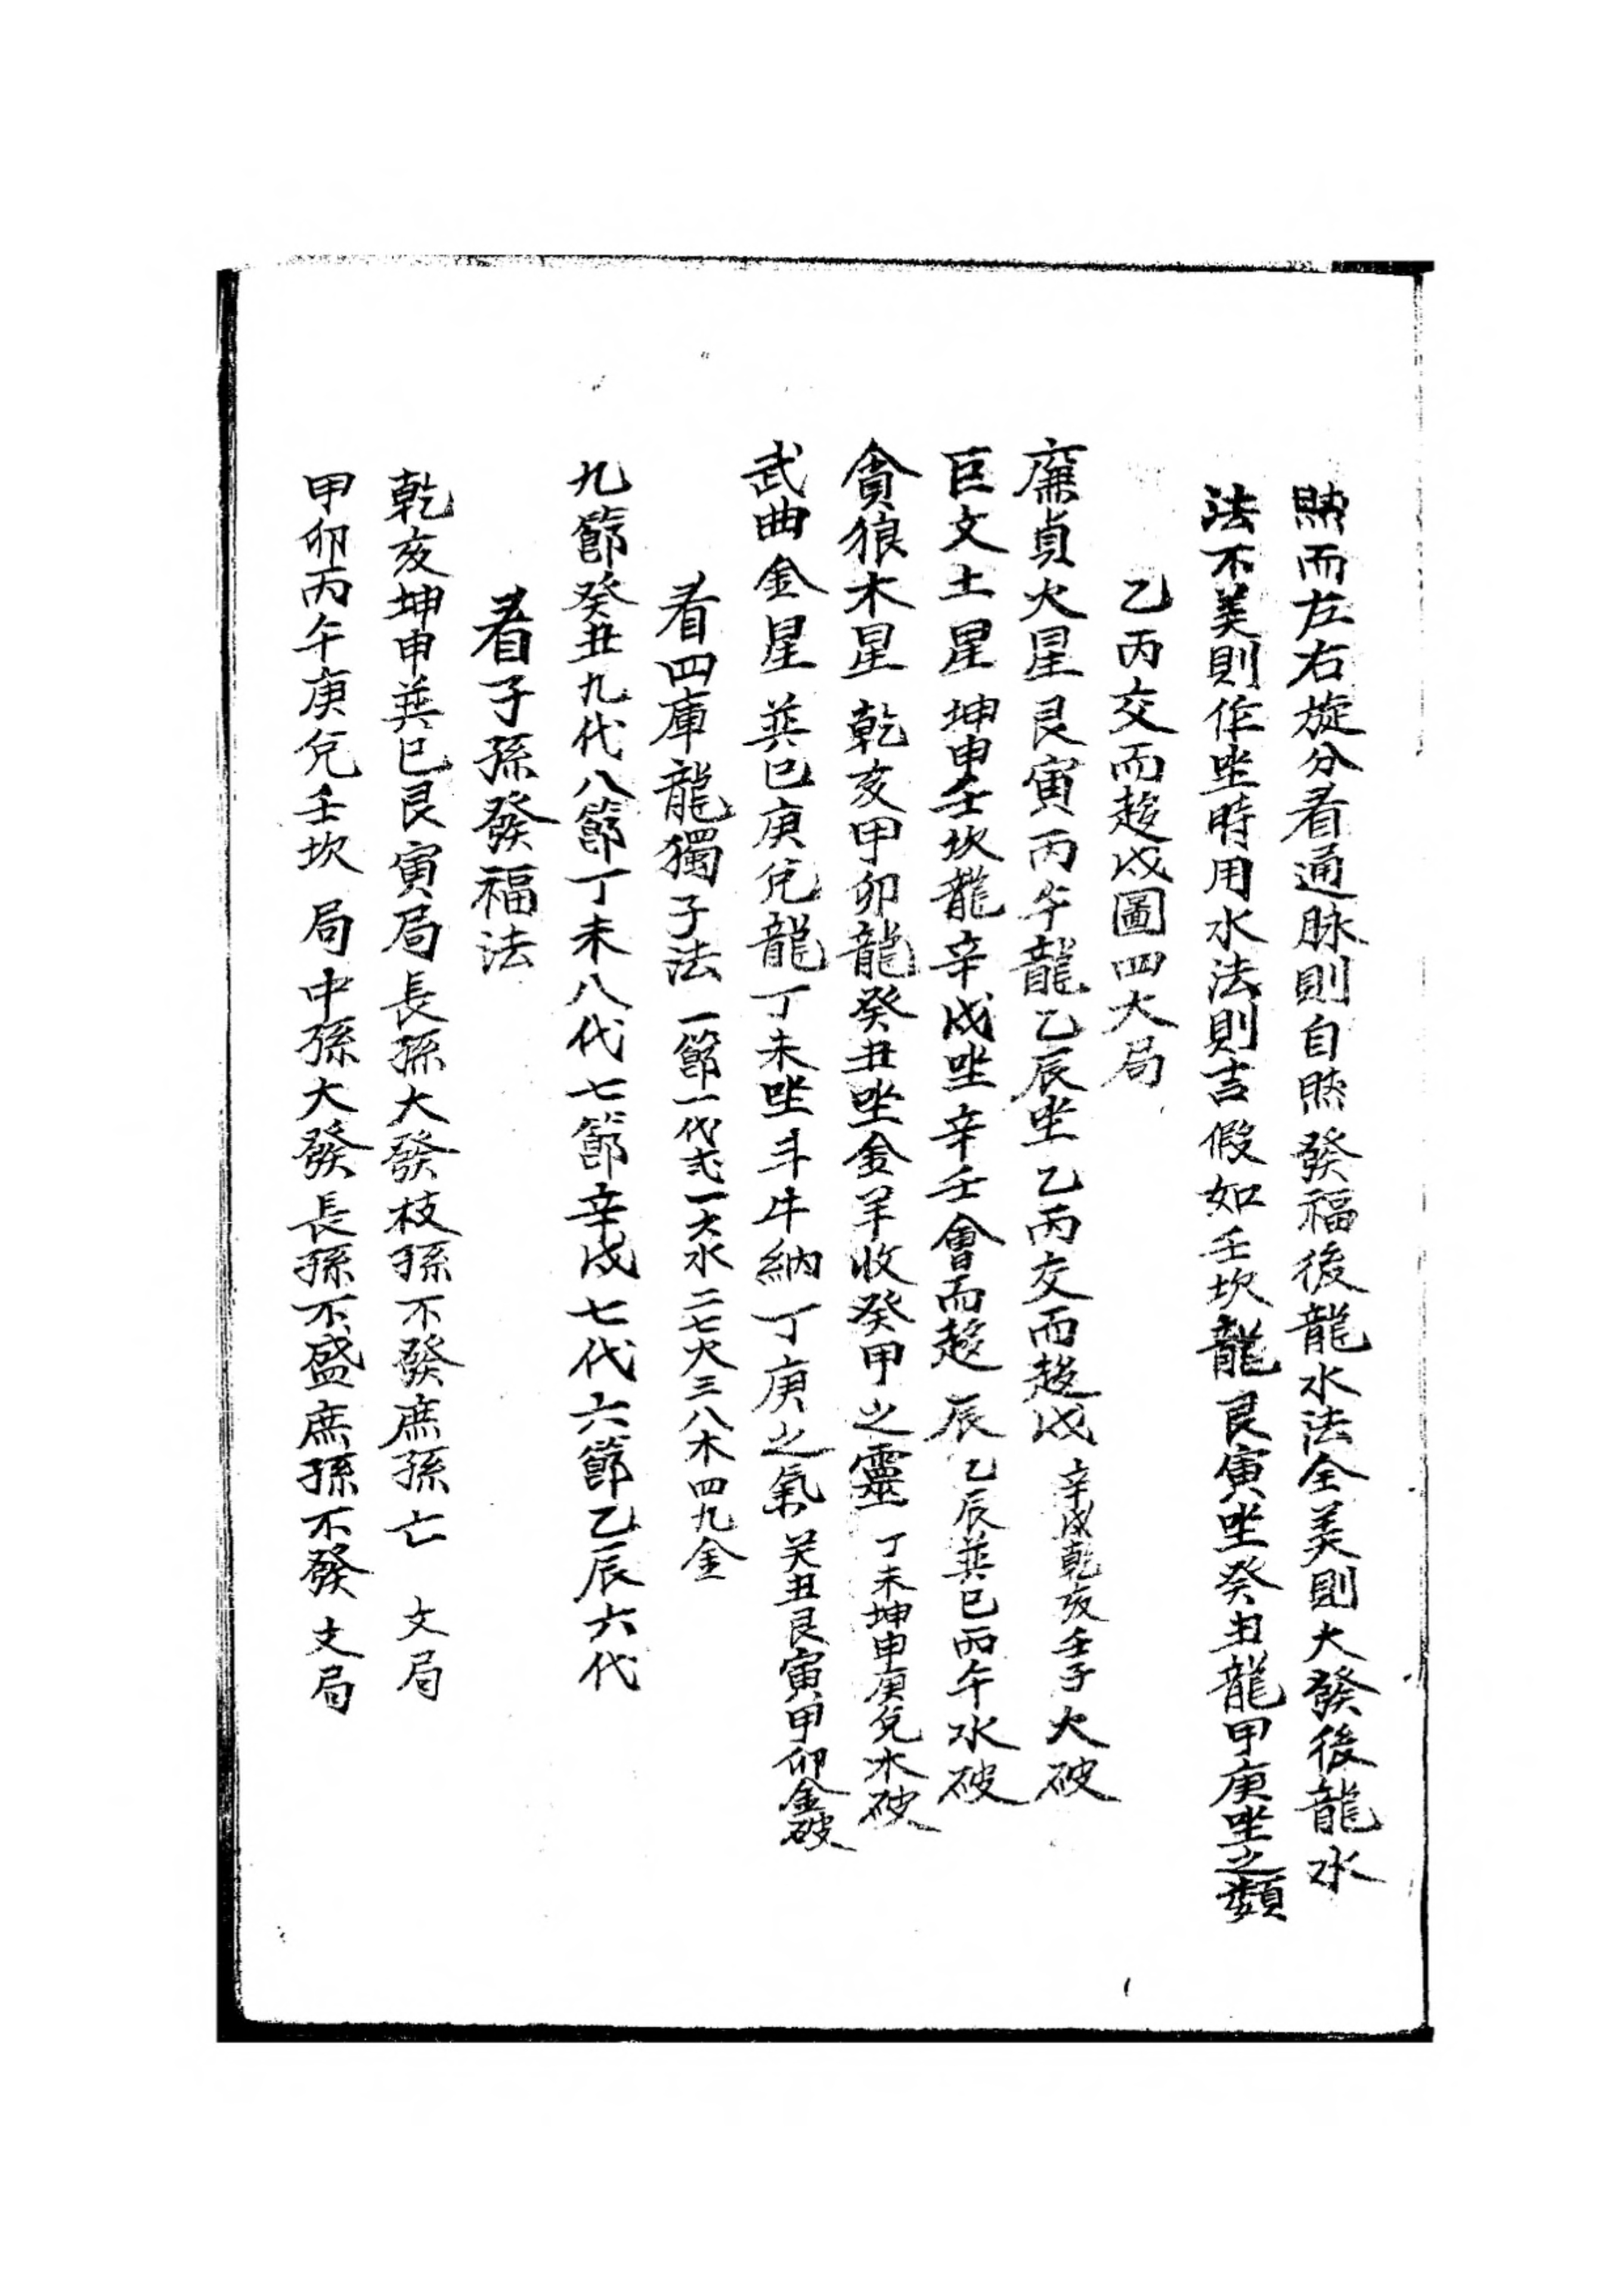 然而左右旋分看通脉則自然發福後龍水法全美則大發後龍水
法不美則作坐時用水法則吉假如壬坎龍艮寅坐癸丑龍甲庚坐之類
乙丙交而趍戌圖四大局
廉貞火星艮寅丙午龍乙辰坐乙丙交而趍戌辛戌乾亥壬子火破
巨文土星坤申壬坎龍辛戌坐辛壬會而趍辰乙辰巽巳丙午水破
貪狼木星乾亥甲卯龍癸丑坐金羊收癸甲之靈丁未坤申庚兌木破
武曲金星巽巳庚兌龍丁未坐斗牛納丁庚之氣癸丑艮寅甲卯金破
看四庫龍獨子法一節一代式一六水二七火三八木四九金
九節癸丑九代八節丁未八代七節辛戌七代六節乙辰六代
看子孫發福法
乾亥坤申巽巳艮寅局長孫大發枝孫不發庶孫亡文局
甲卯丙午庚兌壬坎局中孫大發長孫不盛庶孫不發支局